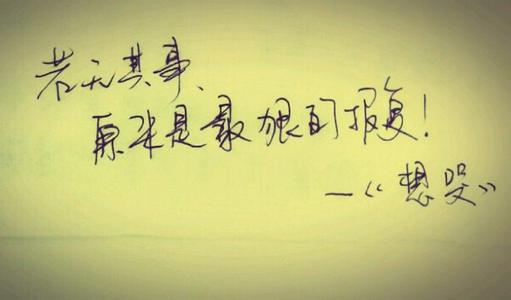 若无其事、
原来是最狠的报复！
—《想哭》